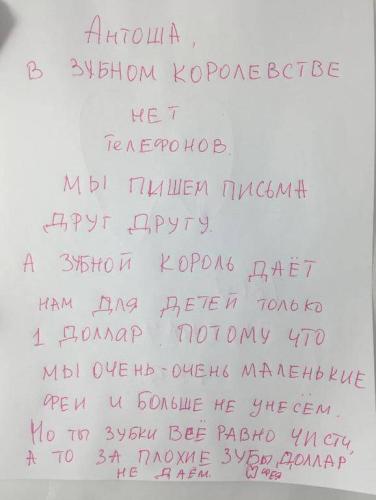 Антоша,
В ЗУБНОМ КОРОЛЕВСТВЕ
НЕТ
ТЕЛЕФОНОВ.
МЫ ПИШЕМ ПИСЬМА
ДРУГ ДРУГУ.
А ЗУБНОЙ КОРОЛЬ ДАЁТ
НАМ ДЛЯ ДЕТЕЙ ТОЛЬКО
1 ДОЛЛАР ПОТОМУ ЧТО
МЫ ОЧЕНЬ-ОЧЕНЬ МАЛЕНЬКИЕ
ФЕИ И БОЛЬШЕ НЕ УНЕСЁМ.
НО ТЫ ЗУБКИ ВСЁ РАВНО ЧИСТИ,
А ТО ЗА ПЛОХИЕ ЗУБЫ ДОЛЛАР
НЕ ДАЁМ. ФЕЯ